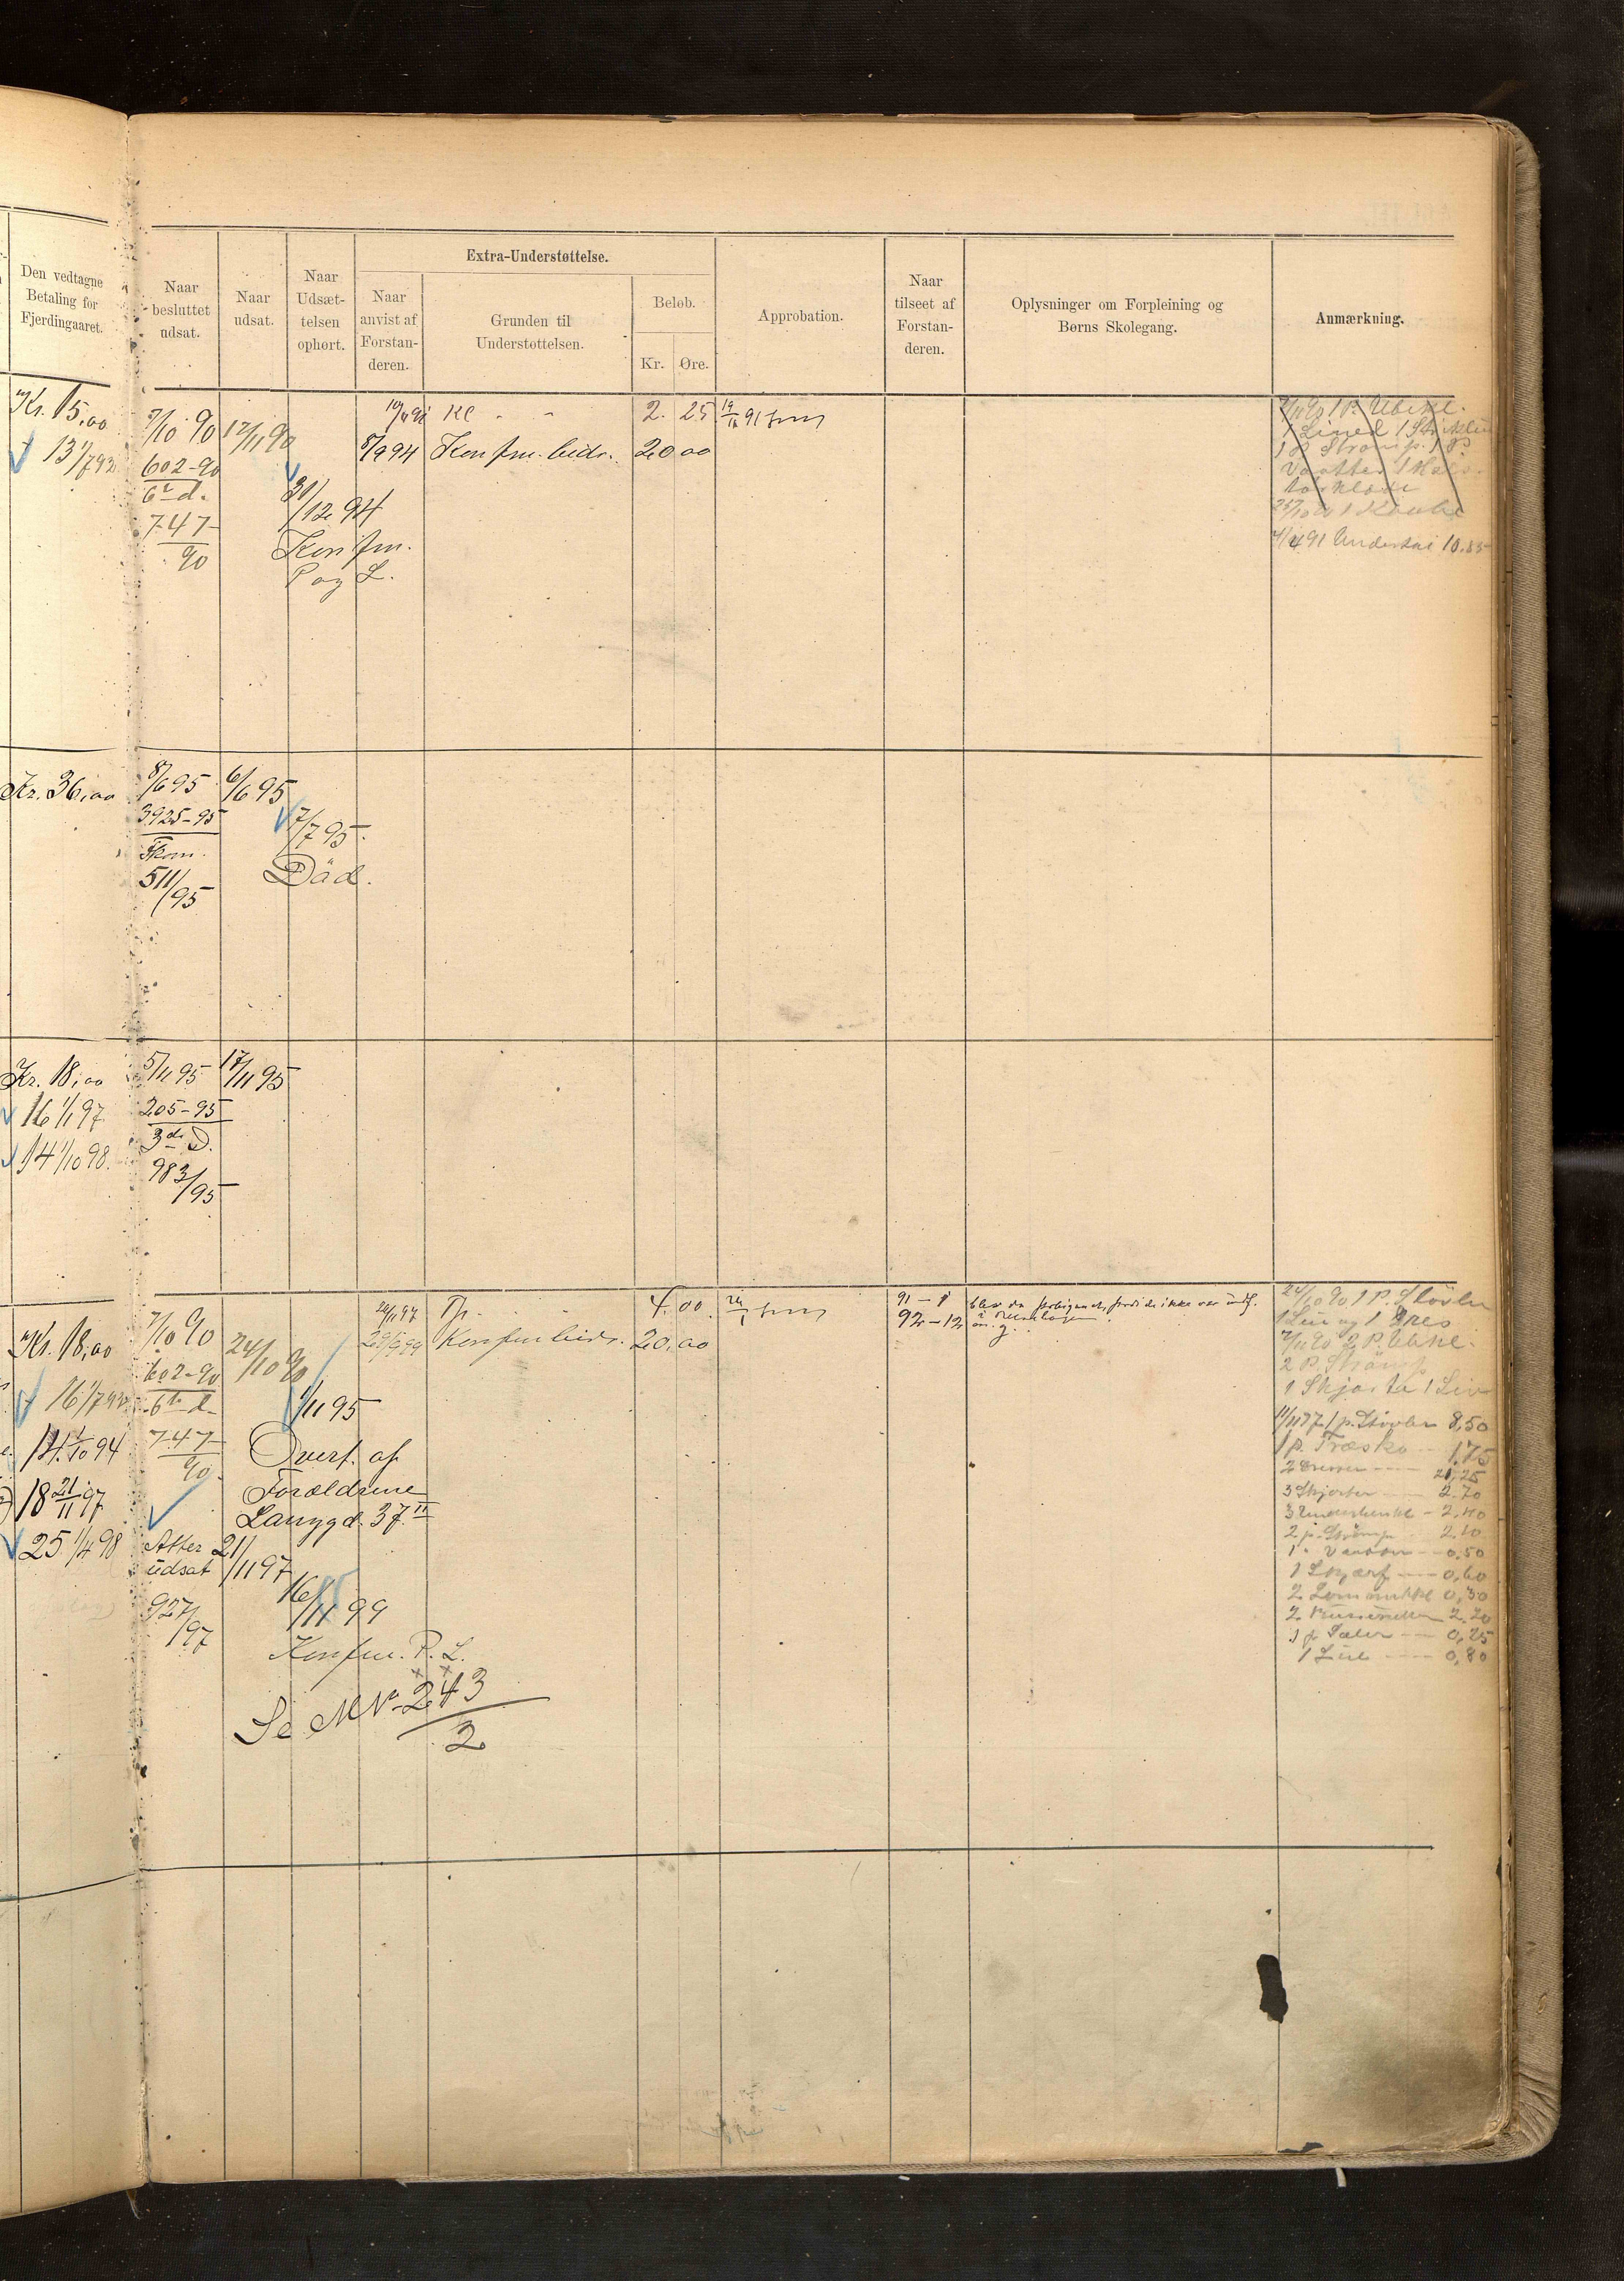 Den vedtagne
Betaling for
Fjerdingaaret.
Naar
besluttet
udsat.
Naar
udsat.
Naar
Udsæt-
telsen
ophørt.
Extra-Understøttelse.
Naar
anvist af
Forstan-
deren.
Grunden til
Understøttelsen.
Beløb.
Kr. Øre.
Approbation.
Naar
tilseet af
Forstan-
deren.
Oplysninger om Forpleining og
Børns Skolegang.
Anmærkning.
Kr. 15,00
13 1/7 92
7/10 90
602-90
6te d.
747
90
12/11 90
31/12 94
Konfm.
P og L.
Kl " "
2. 25
8/9 94 Konfm. bidr. 20 00
1 P. Ubekl.
1 P. Strømp. 1 P
Vanter
4/4 91 10.85
Kr. 36,00
8/6 95
3925-95
Fkom.
511/95
6/6 95
7/7 95
Död.
Kr. 18,00
16 1/1 97
14 1/10 98.
5/11 95
205-95
3die D.
983/95
17/11 95
Kr. 18,00
16 1/7 92
14 1/10 94
18 21/11 97
25 1/4 98
7/10 90
602-90
6te d.
747
90
Atter
udsat
21/11 97
927/97
24/10 90
1/11 95
Overf. af
Forældrene
Langgd. 37 II
16/11 99
Konfm. P. L.
Se M No 243
2
4.00
29/9 99 Konfm bidr. 20,00
91 - 1
92 - 12
24/10 90 1 P. Støvler
1 Lue og 1 Dres
7/11 90 2 P. Ubkl.
2 P. Strömp
1 Skjorte 1 Liv
1 p. Støvler 8,50
1 p. Træsko 1.75
2 Dresser 21,25
3 Skjorter 2.70
3 Underbenkl - 2,40
2 p. Strömper 2.10
1 " Vanter 0,50
1 Skjærf 0,60
2 Lommetkl 0,30
2 2.20
1 p Sæler 0,25
1 Lue 0,80